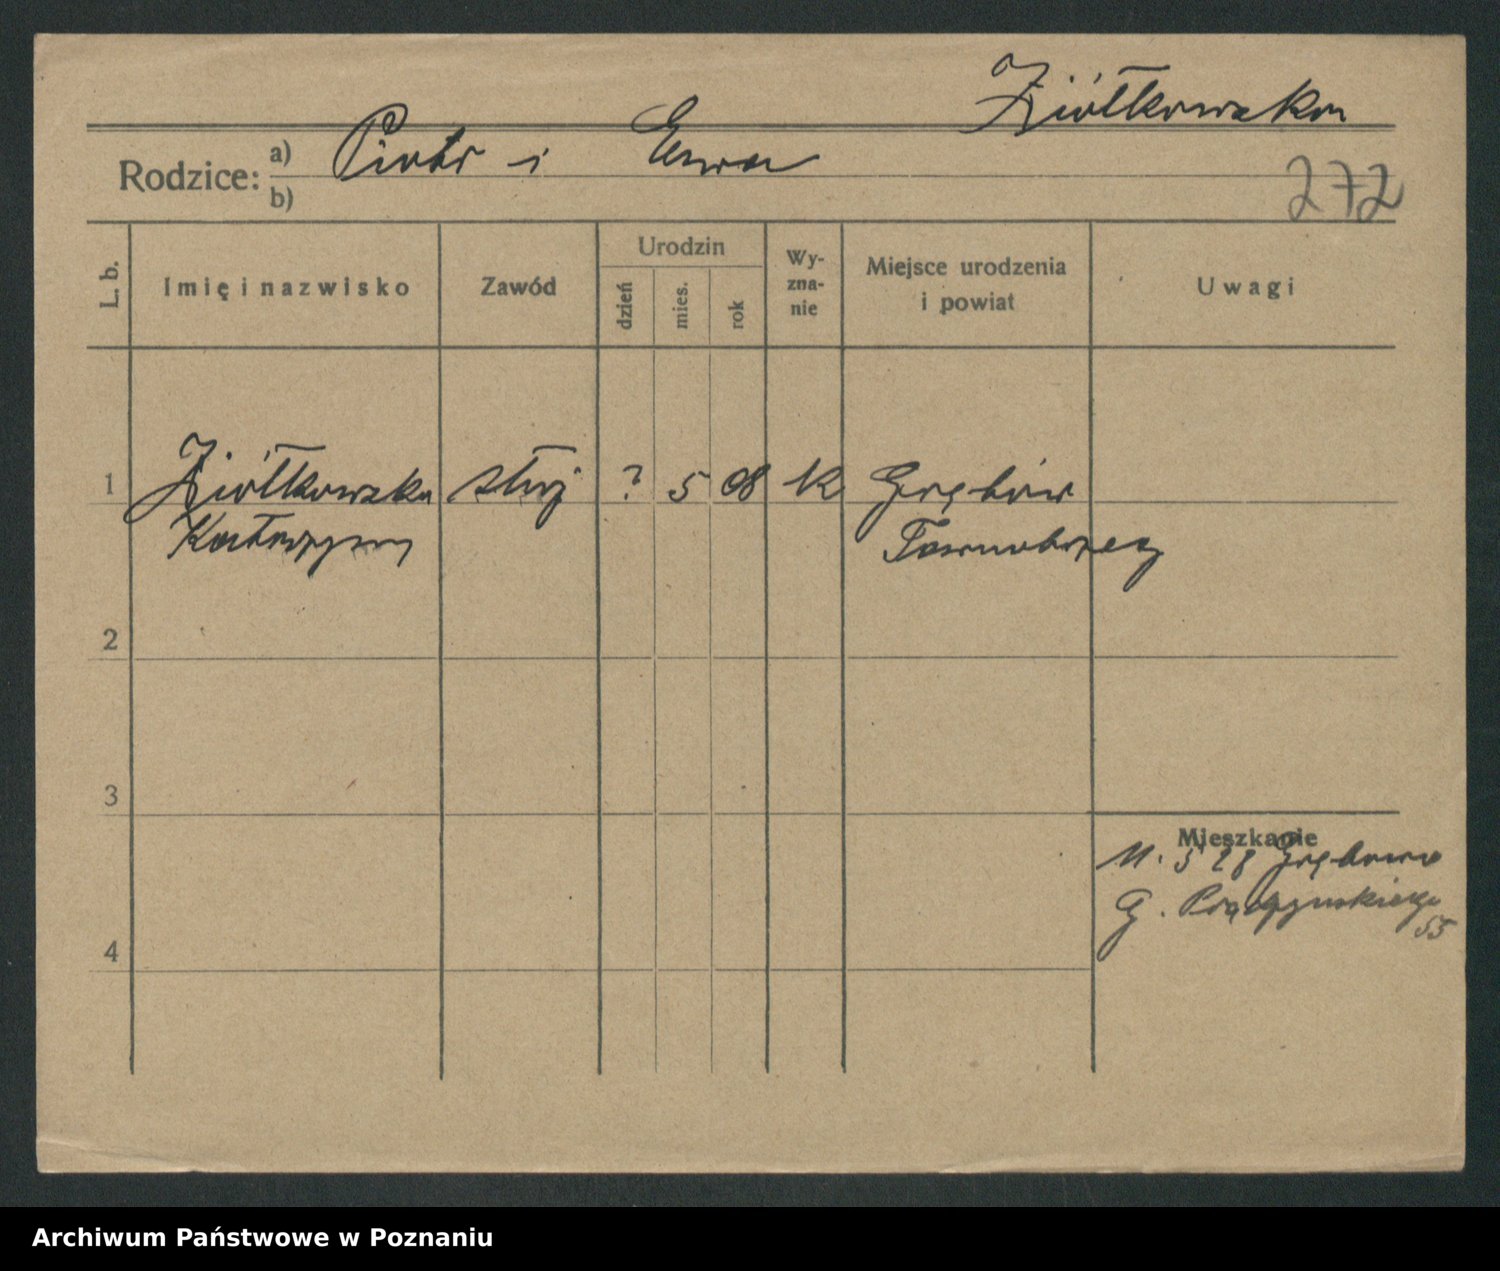 Ziółkowska
Rodzice: a) Piotr i Ewa
b)
272
L. b.
Imię i nazwisko
Zawód
Urodzin
dzień
mies.
rok
Wy-
zna-
nie
Miejsce urodzenia
i powiat
Uwagi
1 Ziółkowska służ ? 5 08 K Grębów
Katarzyna Tarnobrzeg
2
3
Mieszkanie
5 28 Grębowa
G. Prądzyńskiego
55
4
Archiwum Państwowe w Poznaniu